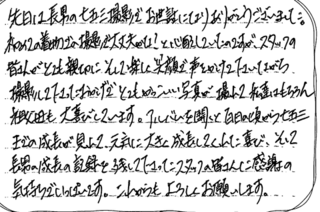 先日は長男の七五三撮影でお世話になりありがとうございました。
初めての着物での撮影で大丈夫かな!と心配していたのですが、スタッフの
皆さんがとても親切に そして楽しく笑顔で声をかけて下さっていながら
撮影して下さったおかげで とてもかっこいい写真が撮れ 私達はもちろん
祖父母も 大喜びしています。アルバムを開くと 百日の頃から七五三
までの成長が見れて、元気に大きく成長してくれた喜び、そして
長男の成長の記録を残して下さったスタッフの皆さんに感謝の
気持ちでいっぱいです。これからも よろしくお願いします。